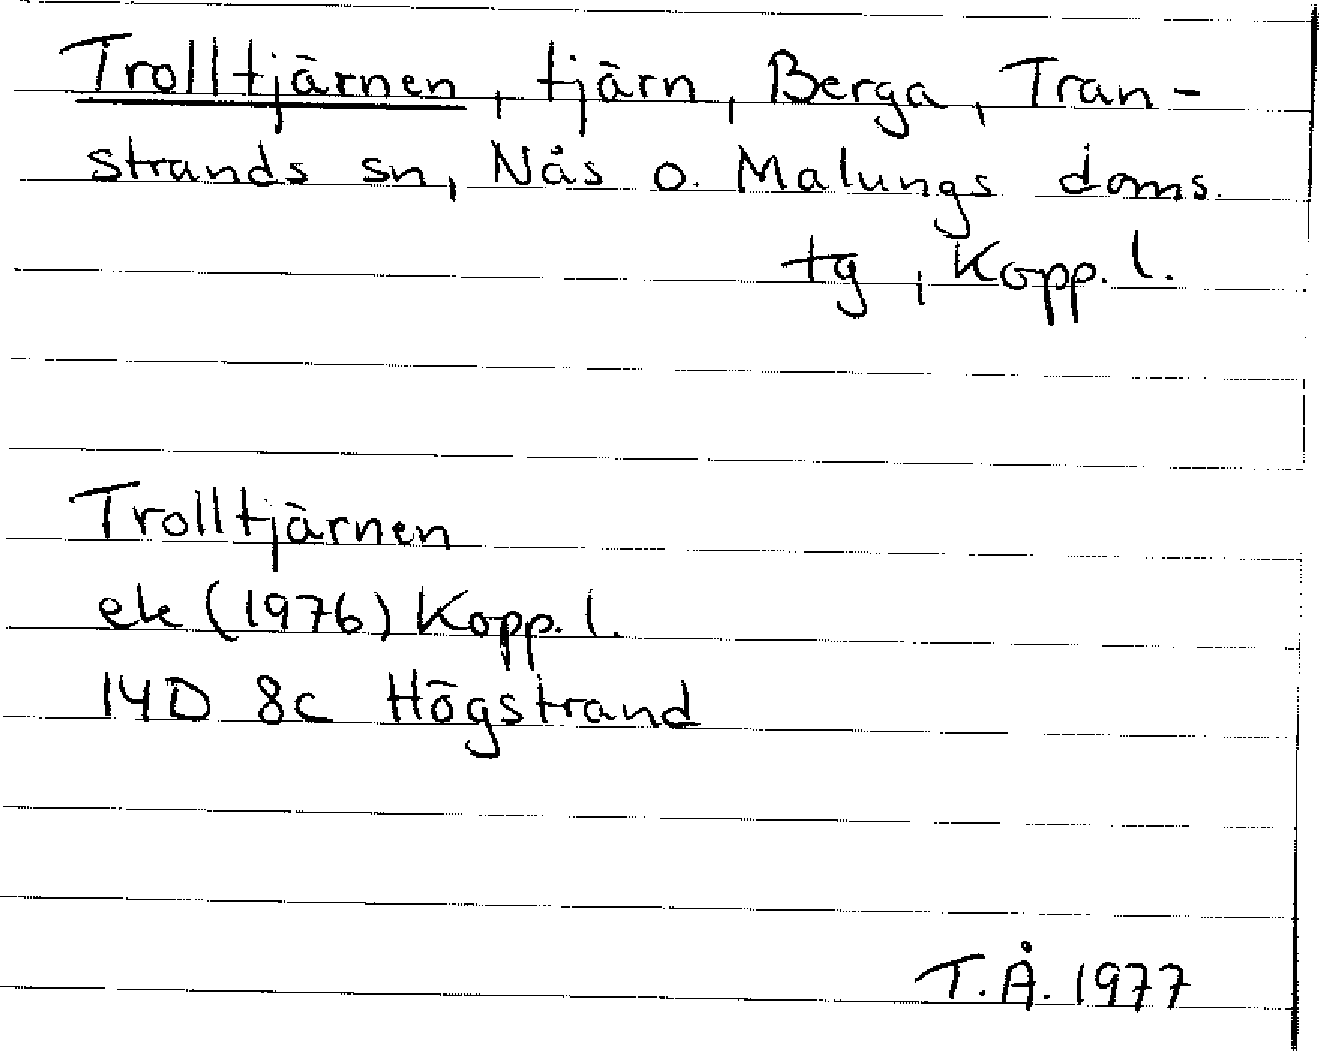 Trolltjärnen, tjärn, Berga, Tran-
strands sn, Nås o. Malungs doms.
tg, Kopp. l.
Trolltjärnen
ek (1976) Kopp. l.
14D 8c Högstrand
T.Å. 1977